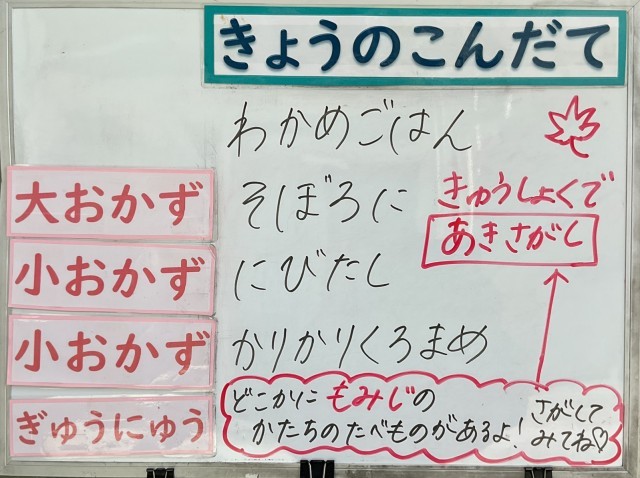 きょうのこんだて
わかめごはん
大おかず
そぼろに
きゅうしょくで
あきさがし
小おかず
にびたし
小おかず
かりかりくろまめ
ぎゅうにゅう
どこかに もみじの
かたちのたべものがあるよ!
さがして
みてね♡